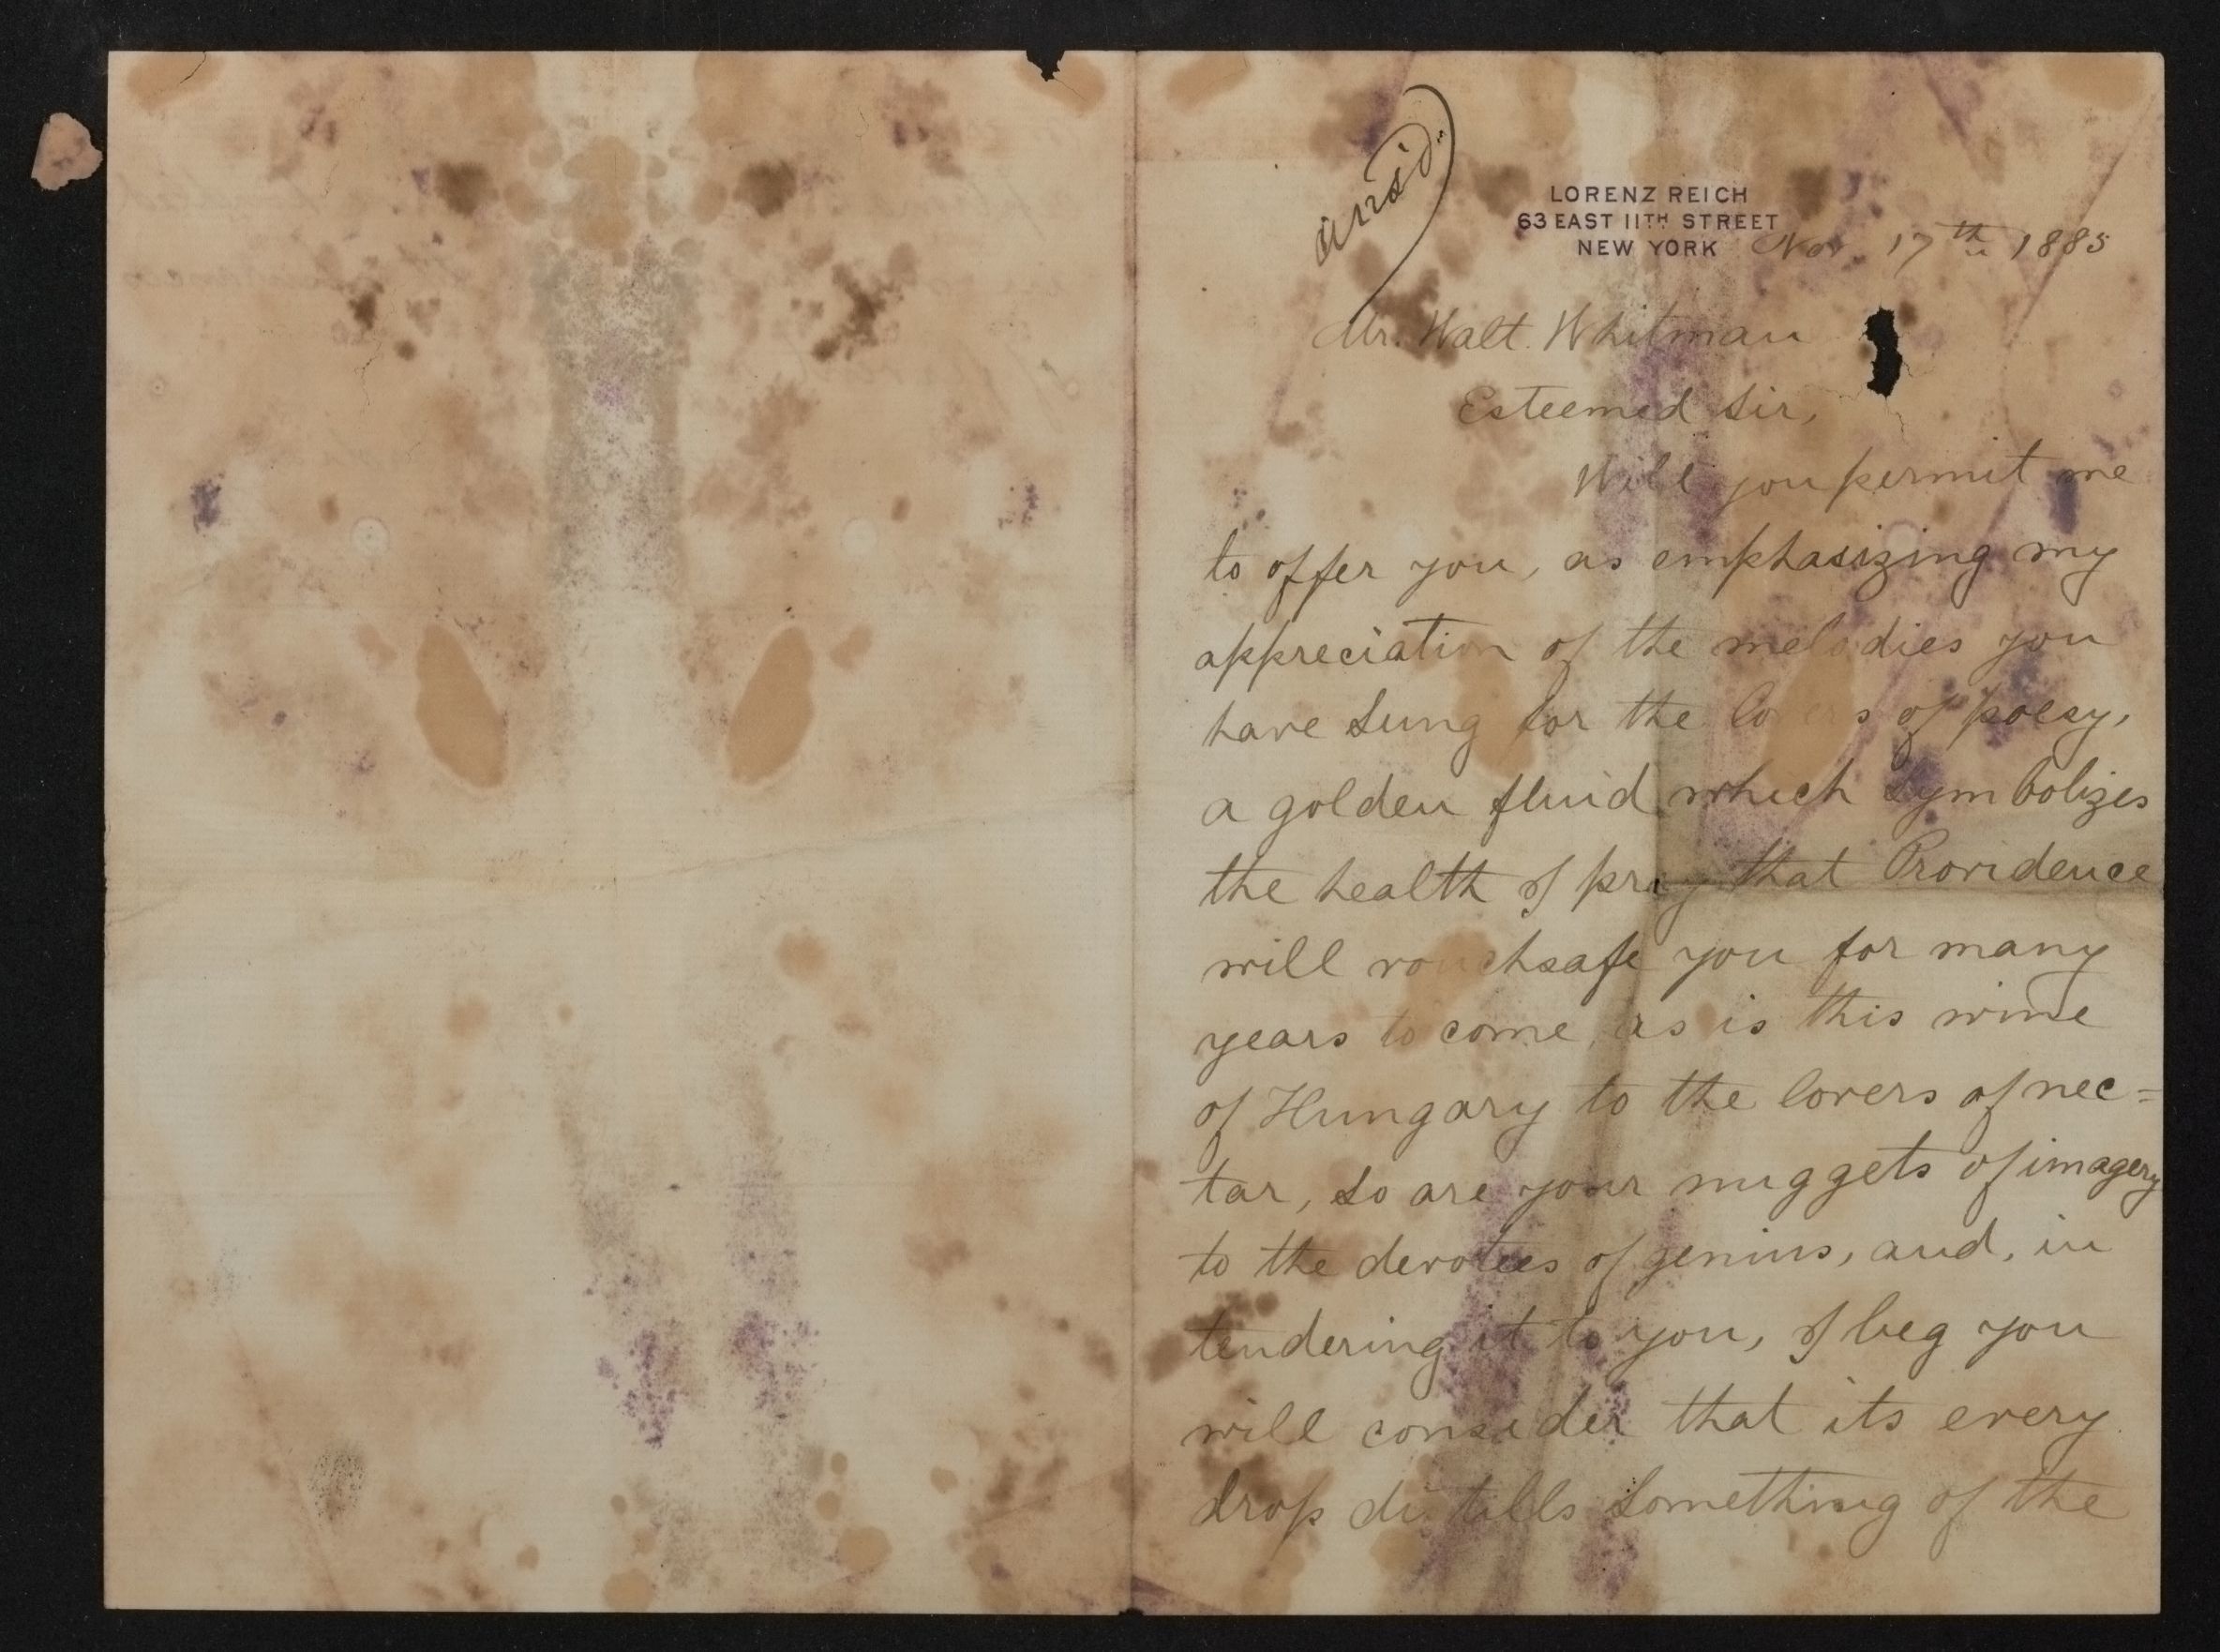 LORENZ REICH
63 EAST 11TH STREET
NEW YORK
Nov. 17th 1885
Mr. Walt. Whitman
Esteemed Sir,
Will you permit me
to offer you, as emphasizing my
appreciation of the melodies you
have sung for the lovers of poesy,
a golden fluid which symbolizes
the health I pray that Providence
will vouchsafe you for many
years to come, as is this wine
of Hungary to the lovers of nec=
tar, so are your nuggets of imagery
to the devotees of genius, and, in
tendering it to you, I beg you
will consider that its every
drop distills something of the